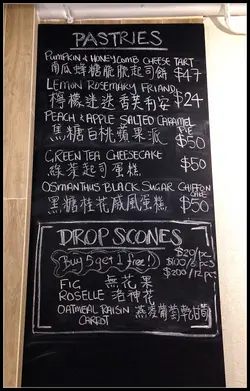 PASTRIES
PUMPKIN & HONEYCOMB CHEESE TART
南瓜蜂糖脆脆起司餅 $47
LEMON ROSEMARY FRIAND
檸檬迷迭香芙利客 $24
PEACH & APPLE SALTED CARAMEL PIE
焦糖白桃蘋果派 $50
GREEN TEA CHEESECAKE
綠茶起司蛋糕 $50
OSMANTHUS BLACK SUGAR CHIFFON CAKE
黑糖桂花戚風蛋糕 $50
DROP SCONES
Buy 5 get 1 free!
$20/pc
$100/6 pcs
$200/12 pcs
FIG 無花果
ROSELLE 洛神花
OATMEAL RAISIN CARROT 燕麥葡萄乾胡蘿蔔